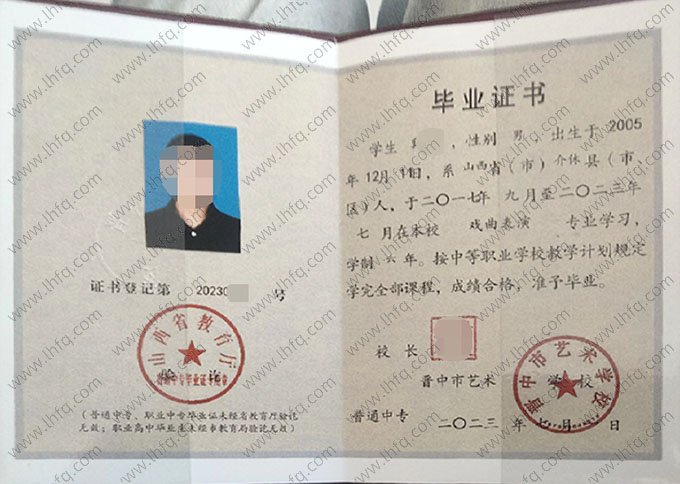 证书登记第 20230 号
山西省教育厅
验讫
普通中专毕业证书验章
(普通中专、职业中专毕业证未经省教育厅验讫
无效;职业高中毕业证未经市教育局验讫无效)
毕业证书
学生 ,性别 男,出生于 2005
年12月 日,系 山西省(市)介休县(市、
区)人,于二〇一七年 九月至二〇二三年
七 月在本校 戏曲表演 专业学习,
学制 六 年。按中等职业学校教学计划规定
学完全部课程,成绩合格,准予毕业。
校 长
晋中市艺术 学 校
普通中专 二〇二三 年 七 月 日
晋中市艺术学校
www.lhfq.com